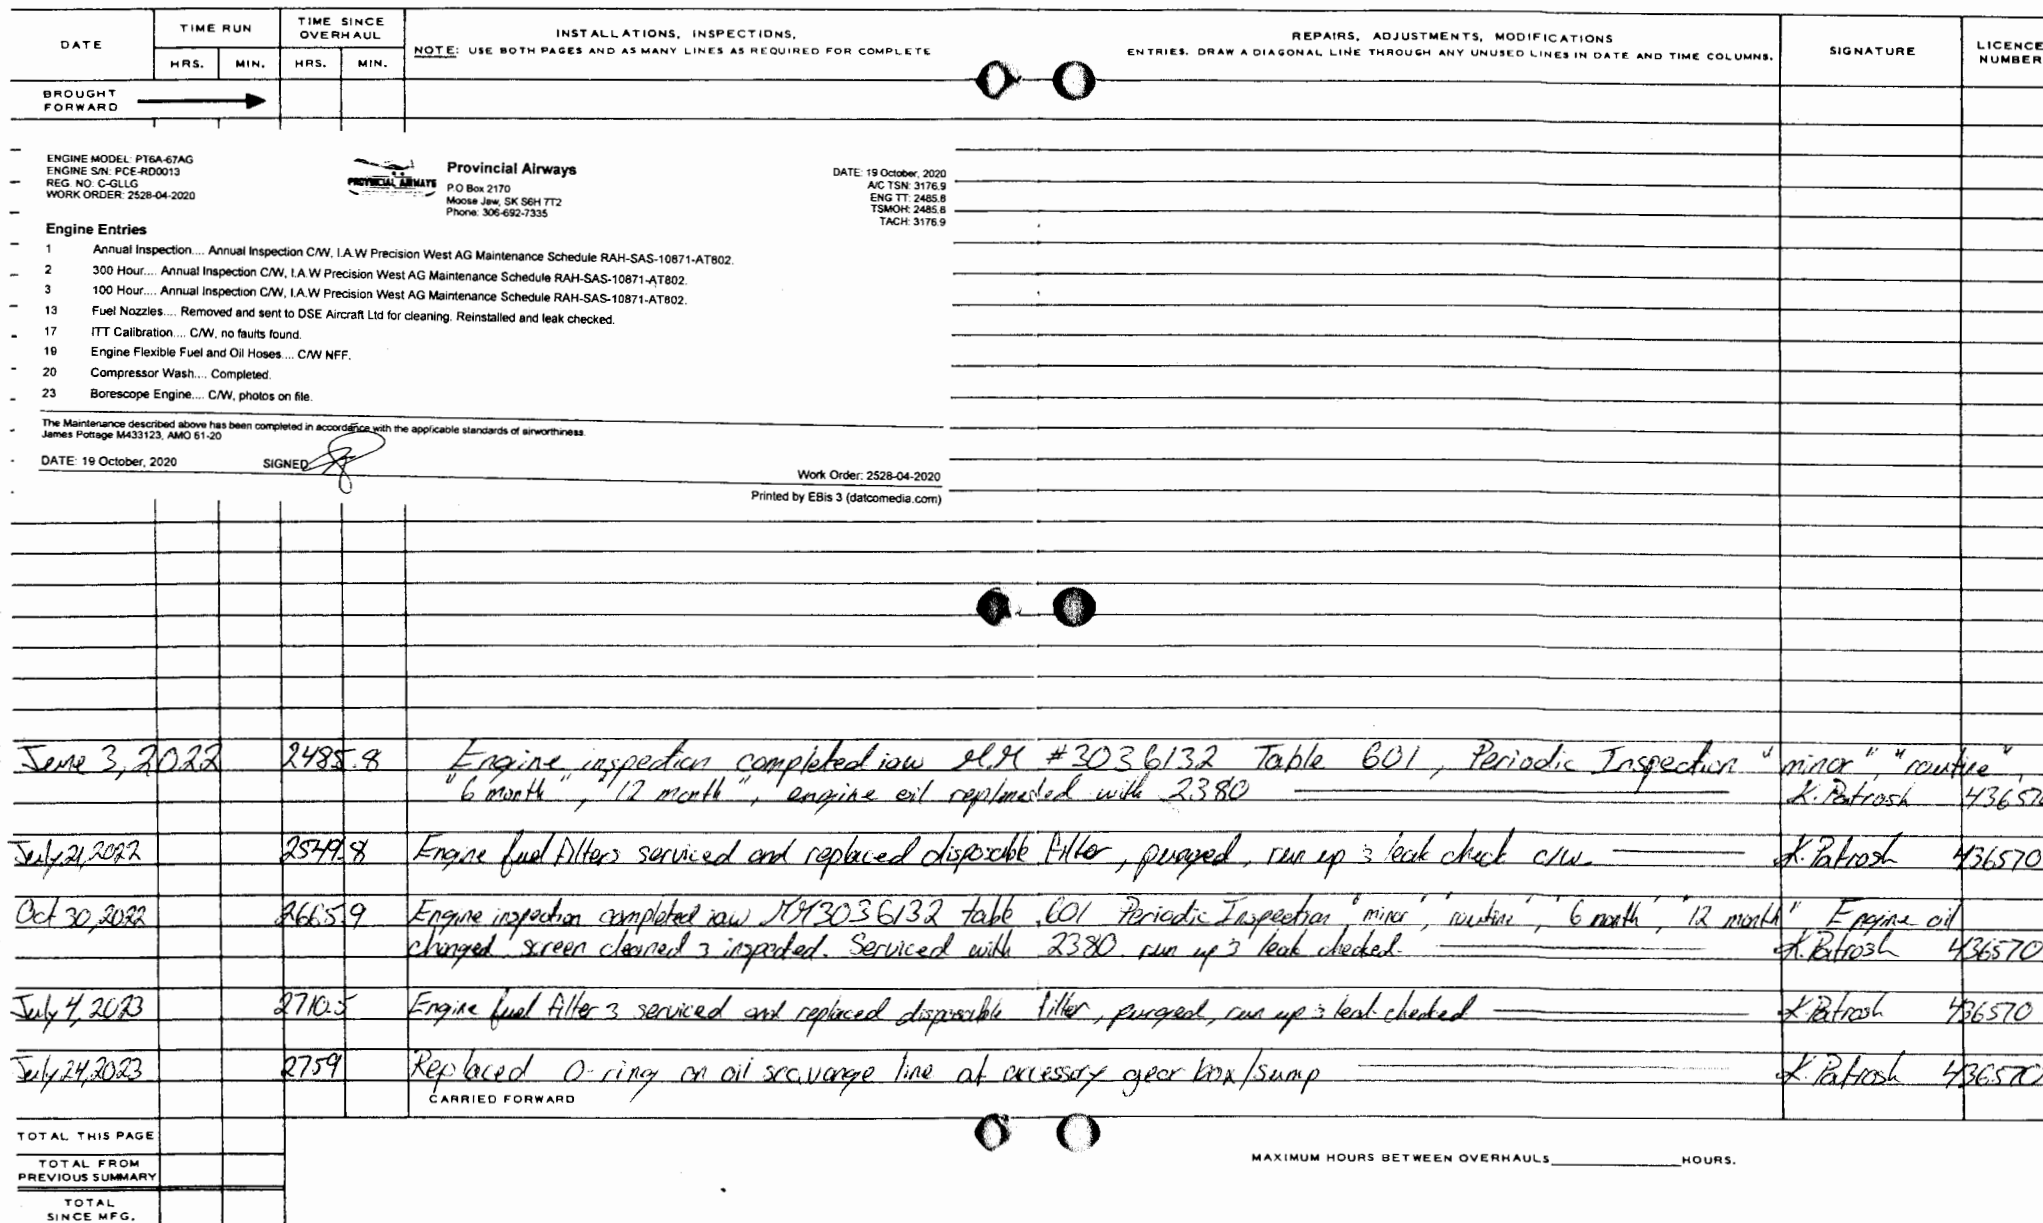 DATE
TIME RUN
HRS. MIN.
TIME SINCE
OVERHAUL
HRS. MIN.
INSTALLATIONS, INSPECTIONS,
NOTE: USE BOTH PAGES AND AS MANY LINES AS REQUIRED FOR COMPLETE
REPAIRS, ADJUSTMENTS, MODIFICATIONS
ENTRIES. DRAW A DIAGONAL LINE THROUGH ANY UNUSED LINES IN DATE AND TIME COLUMNS.
SIGNATURE
LICENCE
NUMBER
BROUGHT
FORWARD
ENGINE MODEL: PT6A-67AG
ENGINE S/N: PCE-RD0013
REG. NO: C-GLLG
WORK ORDER: 2528-04-2020
PROVINCIAL AIRWAYS
Provincial Airways
P.O Box 2170
Moose Jaw, SK S6H 7T2
Phone: 306-692-7335
DATE: 19 October, 2020
A/C TSN: 3176.9
ENG TT: 2485.8
TSMOH: 2485.8
TACH: 3176.9
Engine Entries
1 Annual Inspection.... Annual Inspection C/W, I.A.W Precision West AG Maintenance Schedule RAH-SAS-10871-AT802.
2 300 Hour.... Annual Inspection C/W, I.A.W Precision West AG Maintenance Schedule RAH-SAS-10871-AT802.
3 100 Hour.... Annual Inspection C/W, I.A.W Precision West AG Maintenance Schedule RAH-SAS-10871-AT802.
13 Fuel Nozzles.... Removed and sent to DSE Aircraft Ltd for cleaning. Reinstalled and leak checked.
17 ITT Calibration.... C/W, no faults found.
19 Engine Flexible Fuel and Oil Hoses.... C/W NFF.
20 Compressor Wash.... Completed.
23 Borescope Engine.... C/W, photos on file.
The Maintenance described above has been completed in accordance with the applicable standards of airworthiness.
James Pottage M433123, AMO 61-20
DATE: 19 October, 2020 SIGNED
Work Order: 2528-04-2020
Printed by EBis 3 (datcomedia.com)
June 3, 2022 2485.8 Engine inspection completed iaw M.M #3036132 Table 601, Periodic Inspection "minor", "routine",
"6 month", "12 month", engine oil with 2380 K. Patrosh 436570
July 21, 2022 2549.8 Engine fuel filters serviced and replaced disposable filter, purged, run up & leak check c/w K. Patrosh 436570
Oct 30, 2022 2665.9 Engine inspection completed iaw MM3036132 table 601 Periodic Inspection "minor", "routine", "6 month", "12 month" Engine oil
changed screen cleaned & inspected. Serviced with 2380 run up & leak checked. K. Patrosh 436570
July 4, 2023 2710.5 Engine fuel filters serviced and replaced disposable filter, purged, run up & leak checked K. Patrosh 436570
July 24, 2023 2759 Replaced O-ring on oil scavange line at accessory gear box/sump K. Patrosh 436570
CARRIED FORWARD
TOTAL THIS PAGE
TOTAL FROM
PREVIOUS SUMMARY
TOTAL
SINCE MFG.
MAXIMUM HOURS BETWEEN OVERHAULS HOURS.